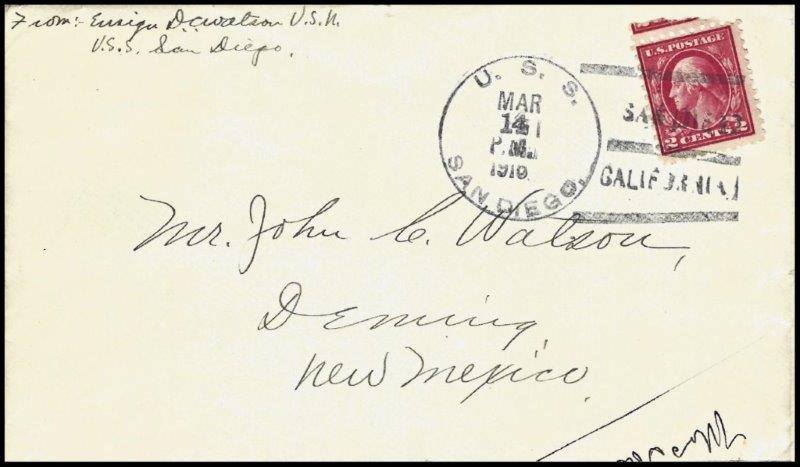 From:- Ensign D.C. Watson U.S.N.
U.S.S. San Diego.
U. S. S.
MAR
14
P.M.
1916
SAN DIEGO.
CALIFORNIA
U.S. POSTAGE
2 CENTS 2
Mr. John C. Watson,
Deming,
New Mexico.